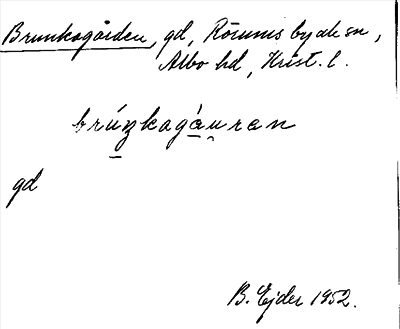 Brunkagården, gd, Rörums by ok sn,
Albo hd, Krist. l.
brúŋkagáu̯ran
gd
B. Ejder 1952.